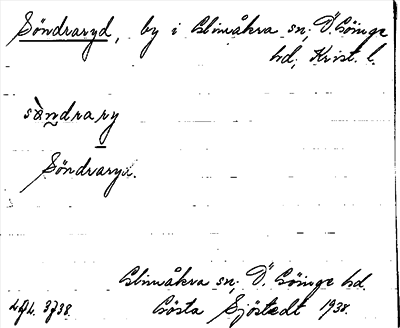 Söndraryd, by i Glimåkra sn, Ö. Göinge
hd, Krist. l.
sàndrary
Söndraryd.
Glimåkra sn, Ö. Göinge hd.
Gösta Sjöstedt 1938.